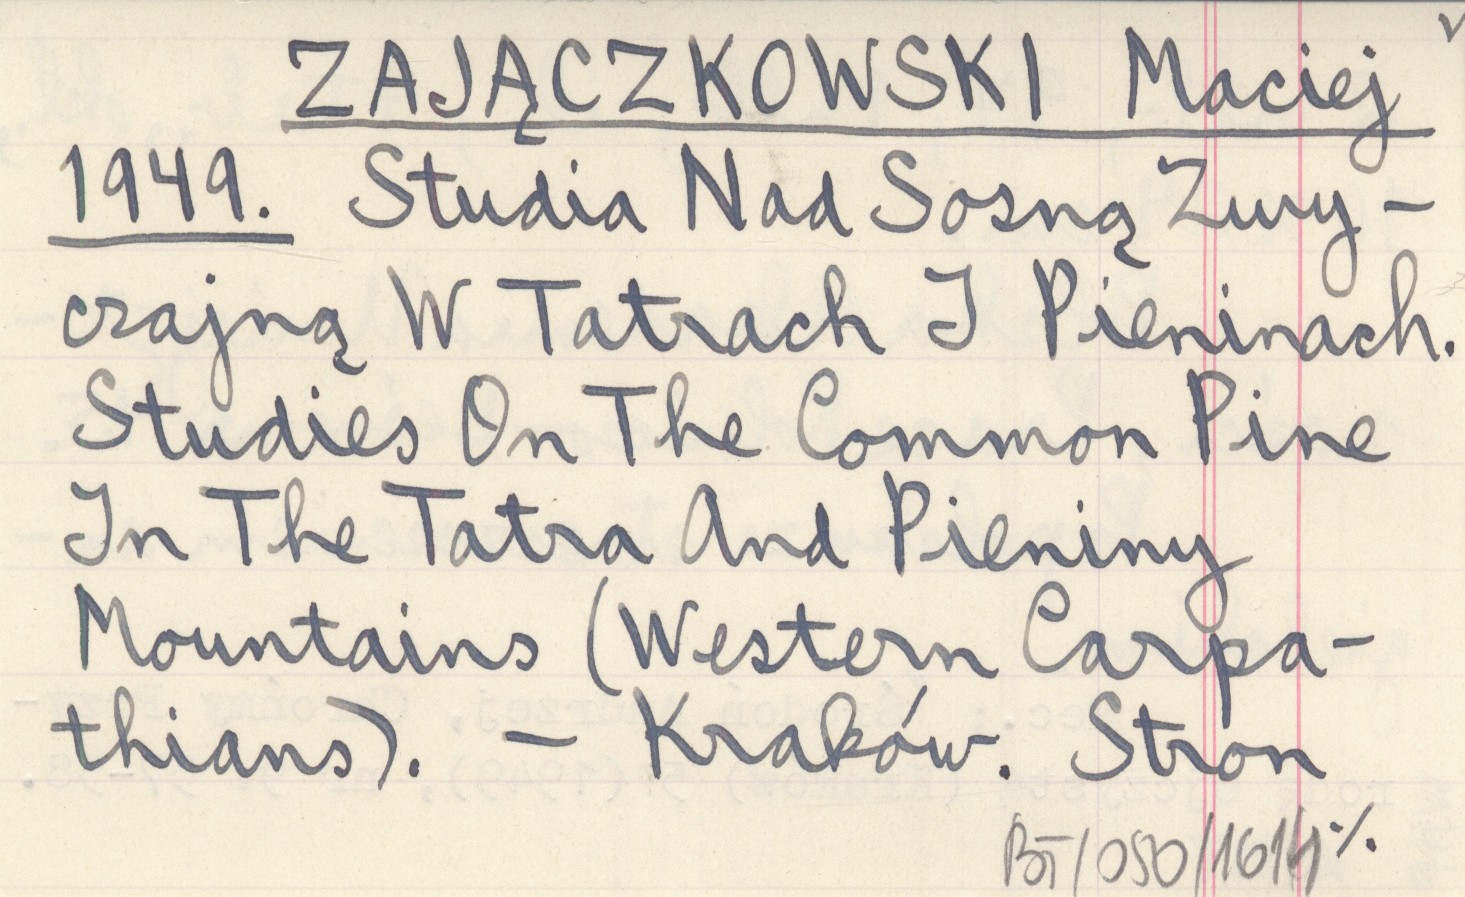 ZAJĄCZKOWSKI Maciej
1949. Studia Nad Sosną Zwy-
czajną W Tatrach I Pieninach.
Studies On The Common Pine
In The Tatra And Pieniny
Mountains (Western Carpa-
thians). — Kraków. Stron
./.